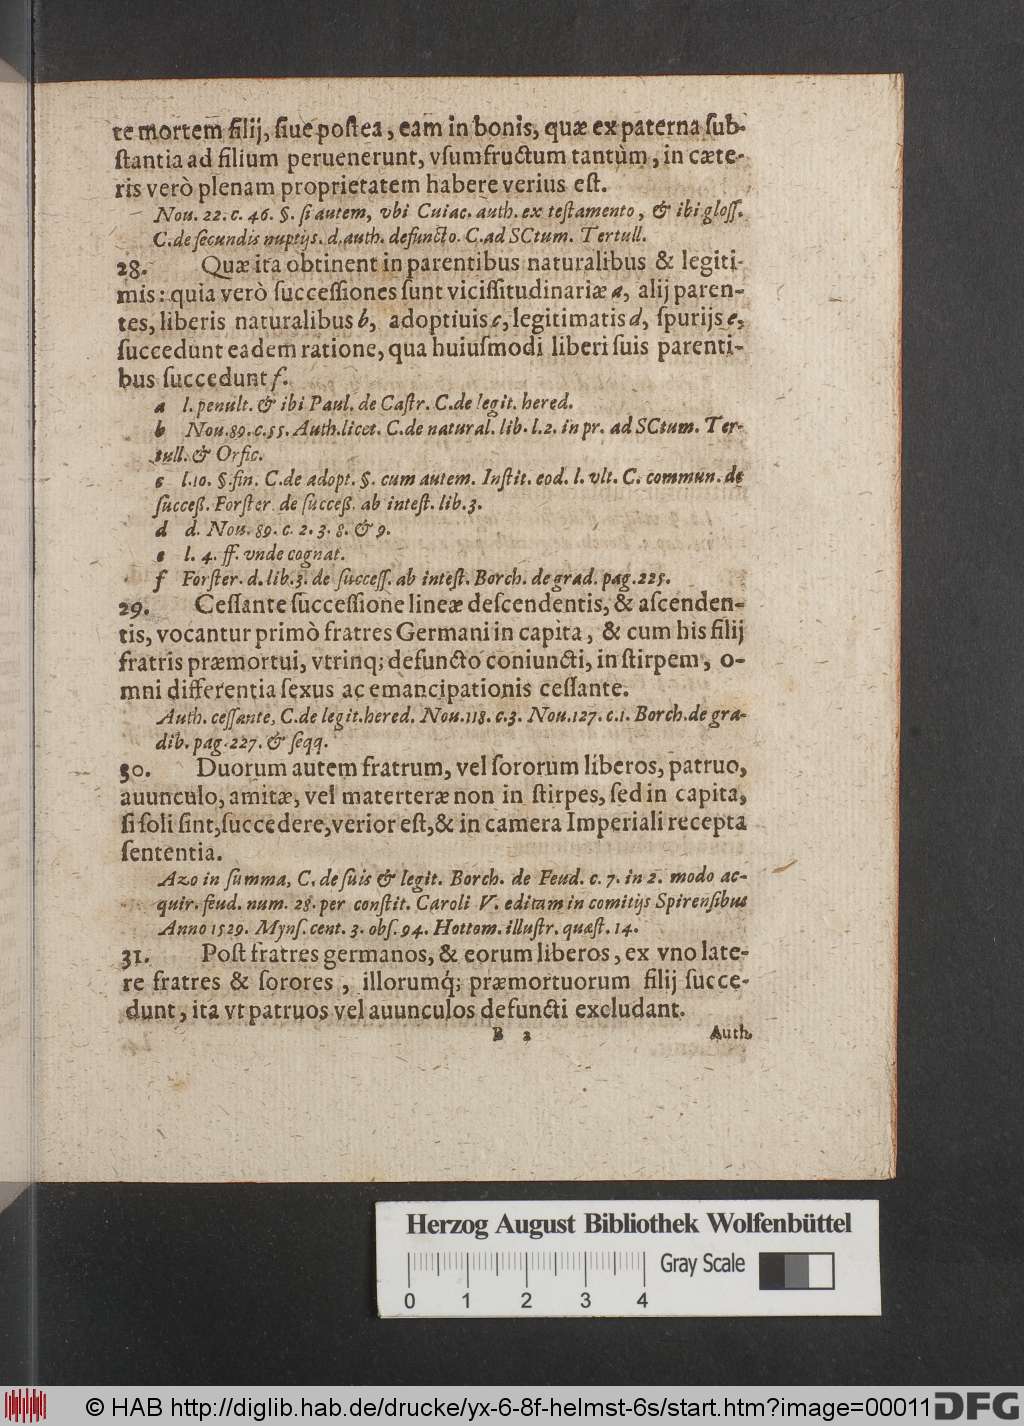 te mortem filij, ſiue poſtea, eam in bonis, quæ ex paterna ſub-
ſtantia ad filium peruenerunt, vſumfructum tantùm, in cæte-
ris verò plenam proprietatem habere verius eſt.
Nou. 22. c. 46. §. ſi autem, vbi Cuiac. auth. ex teſtamento, & ibi gloſſ.
C. de ſecundis nuptijs. d. auth. defuncto. C. ad SCtum. Tertull.
28. Quæ ita obtinent in parentibus naturalibus & legiti-
mis: quia verò ſucceſſiones ſunt viciſſitudinariæ a, alij paren-
tes, liberis naturalibus b, adoptiuis c, legitimatis d, ſpurijs e,
ſuccedunt eadem ratione, qua huiuſmodi liberi ſuis parenti-
bus ſuccedunt f.
a l. penult. & ibi Paul. de Caſtr. C. de legit. hered.
b Nou. 89. c. 55. Auth. licet. C. de natural. lib. l. 2. in pr. ad SCtum. Ter-
tull. & Orfic.
c l. 10. §. fin. C. de adopt. §. cum autem. Inſtit. eod. l. vlt. C. commun. de
ſucceß. Forſter. de ſucceß. ab inteſt. lib. 3.
d d. Nou. 89. c. 2. 3. 8. & 9.
e l. 4. ff. vnde cognat.
f Forſter. d. lib. 3. de ſucceſſ. ab inteſt. Borch. de grad. pag. 225.
29. Ceſſante ſucceſſione lineæ deſcendentis, & aſcenden-
tis, vocantur primò fratres Germani in capita, & cum his filij
fratris præmortui, vtrinq; defuncto coniuncti, in ſtirpem, o-
mni differentia ſexus ac emancipationis ceſſante.
Auth. ceſſante, C. de legit. hered. Nou. 118. c. 3. Nou. 127. c. 1. Borch. de gra-
dib. pag. 227. & ſeqq.
30. Duorum autem fratrum, vel ſororum liberos, patruo,
auunculo, amitæ, vel materteræ non in ſtirpes, ſed in capita,
ſi ſoli ſint, ſuccedere, verior eſt, & in camera Imperiali recepta
ſententia.
Azo in ſumma, C. de ſuis & legit. Borch. de Feud. c. 7. in 2. modo ac-
quir. feud. num. 28. per conſtit. Caroli V. editam in comitijs Spirenſibus
Anno 1529. Mynſ. cent. 3. obſ. 94. Hottom. illuſtr. quæſt. 14.
31. Poſt fratres germanos, & eorum liberos, ex vno late-
re fratres & ſorores, illorumq́; præmortuorum filij ſucce-
dunt, ita vt patruos vel auunculos defuncti excludant.
B 2 Auth.
Herzog August Bibliothek Wolfenbüttel
Gray Scale
0 1 2 3 4
© HAB http://diglib.hab.de/drucke/yx-6-8f-helmst-6s/start.htm?image=00011
DFG